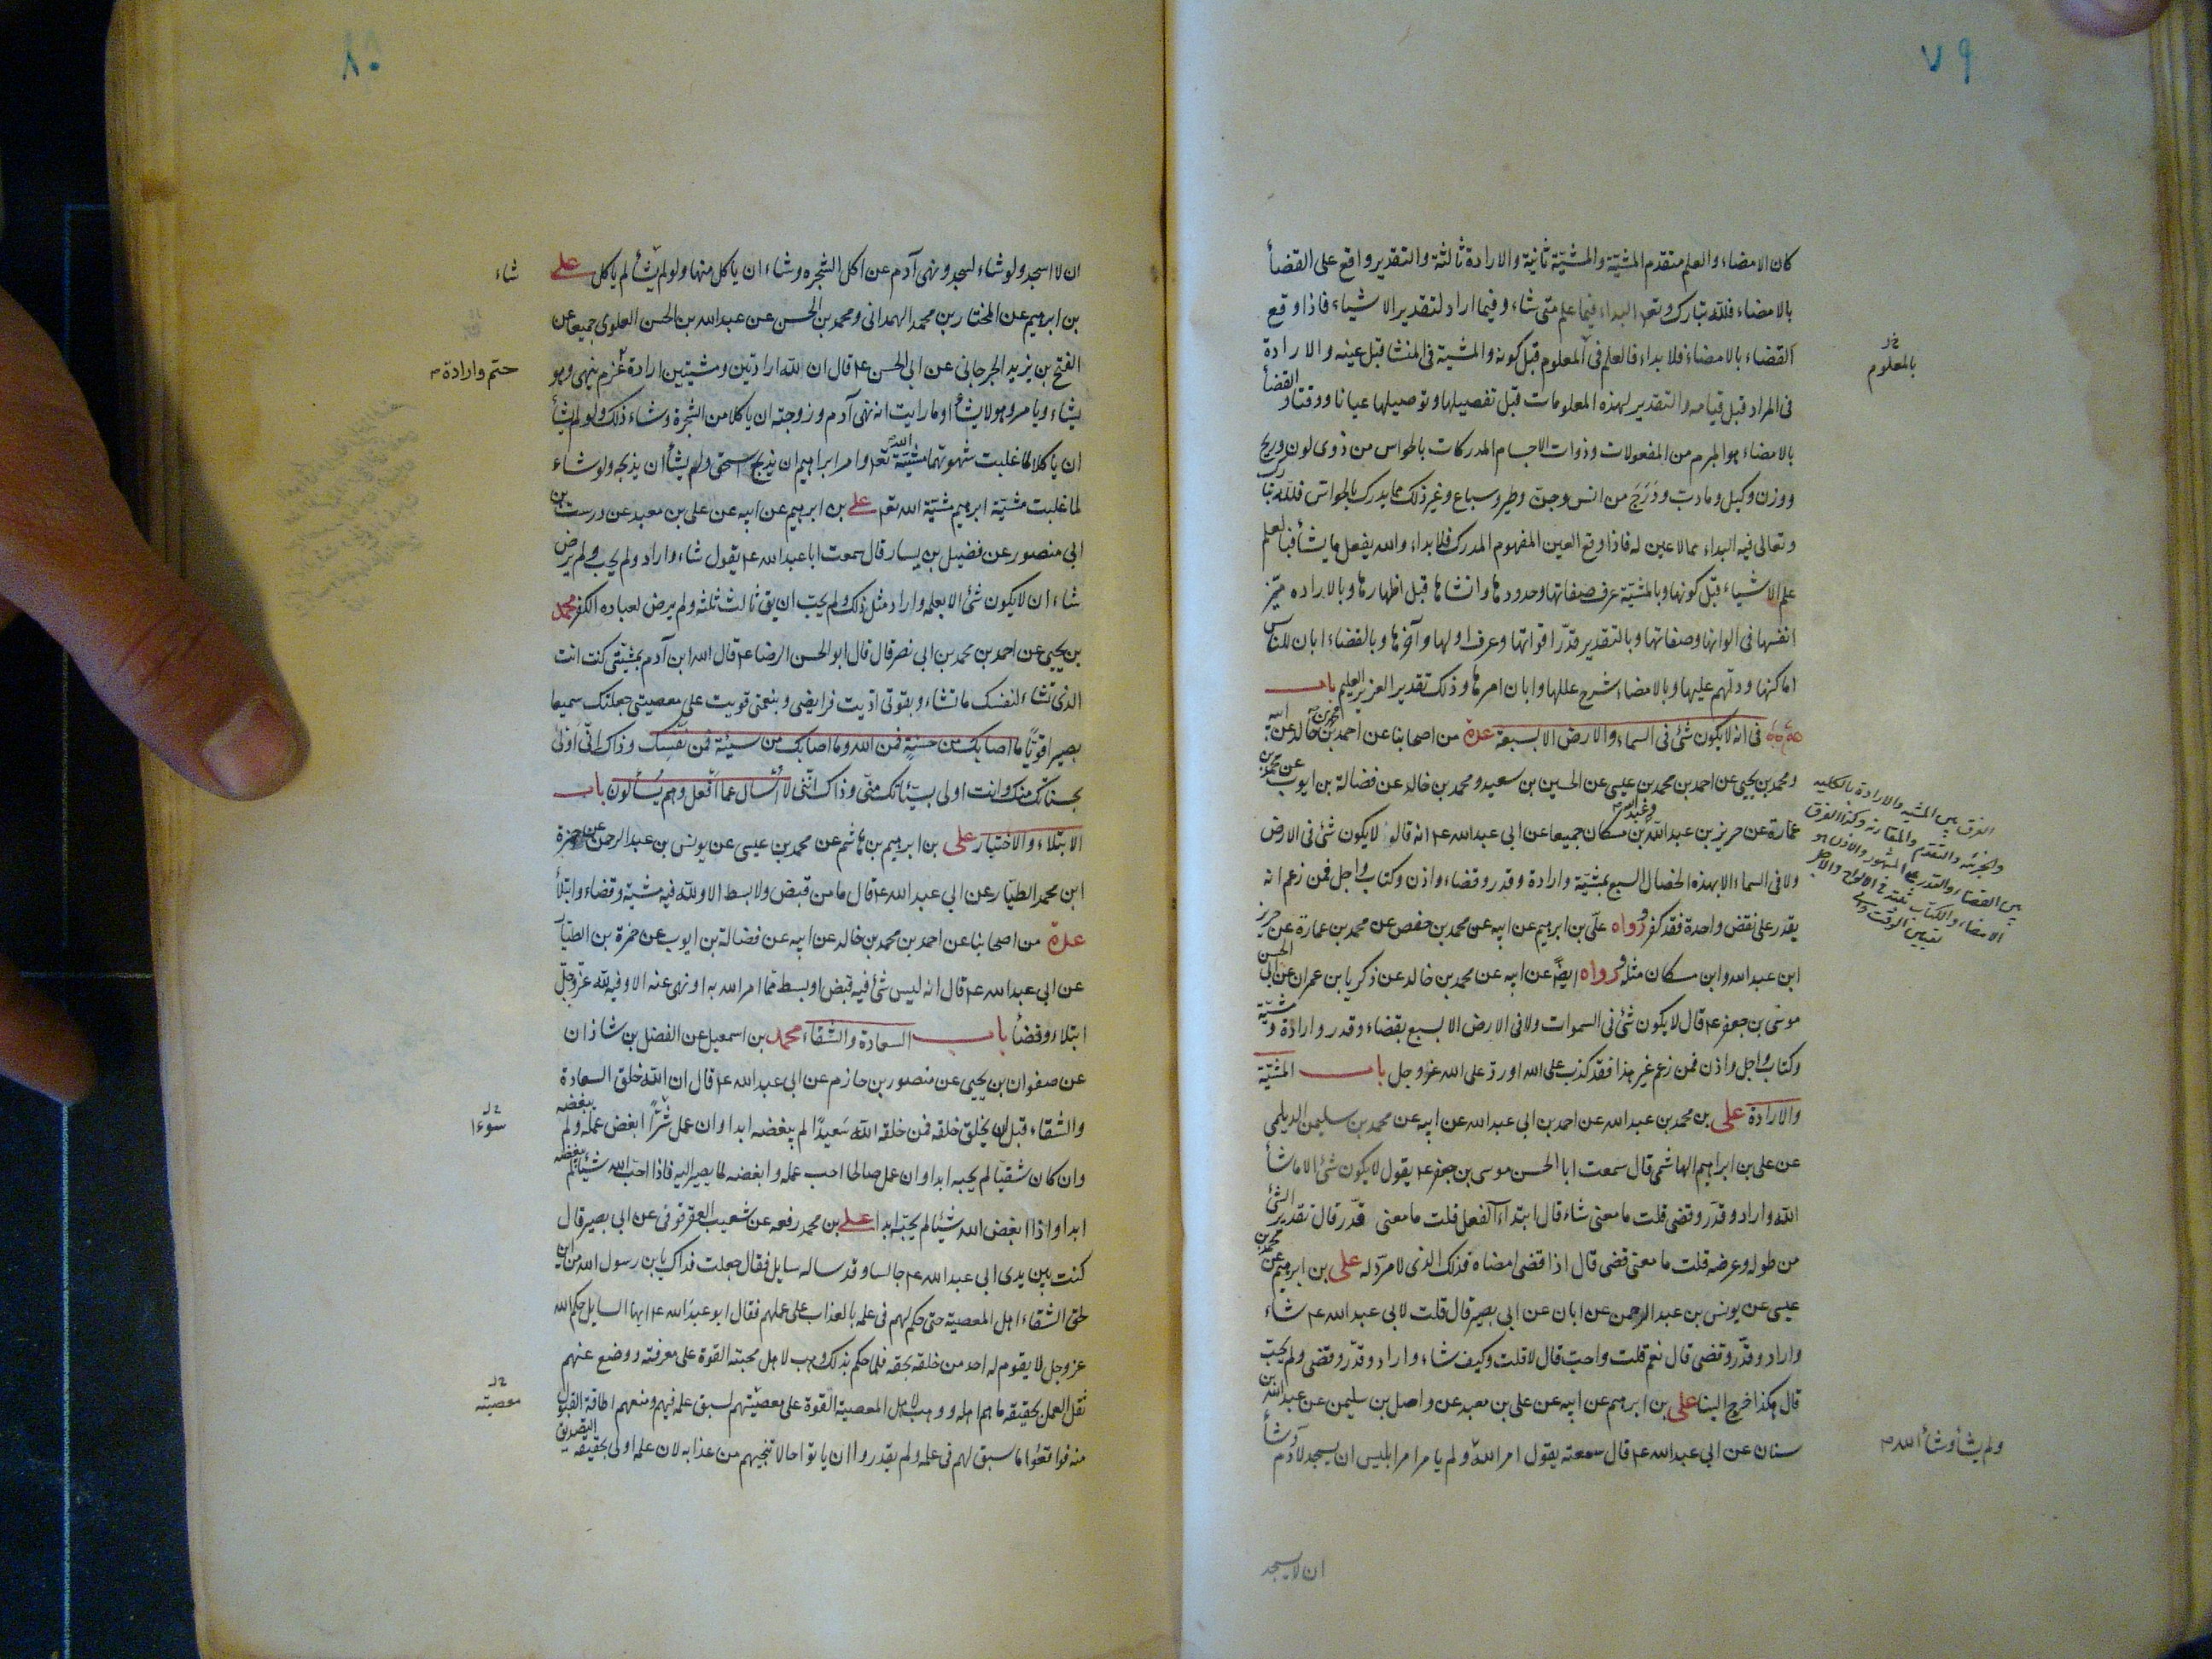 ٧٩
كان الامضاء والعلم متقدم المشيّة والمشيّة ثانية والارادة ثالثة والتقدير واقع على القضأ
بالامضاء فلله تبارك وتعـ البداء فيما علم متى شاء وفيما اراد لتقدير الاشياء فاذا وقع
القضاء بالامضاء فلا بداء فالعلم في المعلوم قبل كونه والمشية في المنشا قبل عينه والارادة
بالمعلوم
في المراد قبل قيامه والتقدير لهذه المعلومات قبل تفصيلها وتوصيلها عيانا ووقتا والقضأ
بالامضاء هو المبرم من المفعولات وذوات الاجسام المدركات بالحواس من ذوى لون وريح
ووزن وكيل وما دبّ ودَرَجَ من انس وجنّ وطير وسباع وغير ذلك مما يدرك بالحواس فلله تبارك
وتعالى فيه البداء مما لا عين له فاذا وقع العين المفهوم المدرك فلا بداء والله يفعل ما يشأ فبالعلم
علم الاشياء قبل كونها وبالمشيّة عرف صفاتها وحدودها وانشاها قبل اظهارها وبالاراده ميّز
انفسها في الوانها وصفاتها وبالتقدير قدّر اقواتها وعرف اولها وآخرها وبالقضاء ابان للناس
اماكنها ودلّهم عليها وبالامضاء شرح عللها وابان امرها وذلك تقدير العزيز العليم باب
في انه لا يكون شئ في السماء والارض الا بسبعة عدة من اصحابنا عن احمد بن محمد بن خالد عن ابيه
ومحمد بن يحيى عن احمد بن محمد بن عيسى عن الحسين بن سعيد ومحمد بن خالد عن فضالة بن ايوب عن محمد بن
عمارة عن حريز بن عبد الله وعبد الله بن مسكان جميعا عن ابى عبد الله عم انه قال لا يكون شئ في الارض
ولا في السماء الا بهذه الخصال السبع بمشيّة وارادة وقدر وقضاء واذن وكتاب واجل فمن زعم انه
يقدر على نقض واحدة فقد كفر ورواه علّى بن ابرهيم عن ابيه عن محمد بن حفص عن محمد بن عمارة عن حريز
ابن عبد الله وابن مسكان مثله ورواه ايضًا عن ابيه عن محمد بن خالد عن زكريا بن عمران عن ابى الحسن
موسى بن جعفر عم قال لا يكون شئ في السموات ولا في الارض الا بسبع بقضاء وقدر وارادة ومشيّة
وكتاب واجل واذن فمن زعم غير هذا فقد كذب على الله او ردّ على الله عز وجل باب المشيّة
والارادة على بن محمد بن عبد الله عن احمد بن ابى عبد الله عن ابيه عن محمد بن سليمن الديلمى
عن على بن ابراهيم الهاشمى قال سمعت ابا الحسن موسى بن جعفر عم يقول لا يكون شئ الا ما شأ
الله واراد وقدّر وقضى قلت ما معنى شاء قال ابتداء الفعل قلت ما معنى قدّر قال تقدير الشئ
من طوله وعرضه قلت ما معنى قضى قال اذا قضى امضاه فذلك الذى لا مردّ له على بن ابرهيم عن محمد بن
عيسى عن يونس بن عبد الرحمن عن ابان عن ابى بصير قال قلت لابى عبد الله عم شاء
واراد وقدّر وقضى قال نعم قلت واحبّ قال لا قلت وكيف شاء واراد وقدّر وقضى ولم يحبّ
قال هكذا خرج الينا على بن ابرهيم عن ابيه عن على بن معبد عن واصل بن سليمن عن عبد الله بن
سنان عن ابى عبد الله عم قال سمعته يقول امر الله ولم يشأ وشأ ولم يامر امر ابليس ان يسجد لآدم وشأ
الفرق بين المشيه والارادة بالكليه
والجزئيه والتقدم والمقارنه وكذا الفرق
بين القضاء والقدر على المشهور والاذن هو
الامضاء والكتاب ثبته في الالواح والاجل
تعيين الوقت
ولم يشأ وشأ الله
ان لا يسجد
٨٠
ان لا اسجد ولو شاء لسجد ونهى آدم عن اكل الشجره وشاء ان ياكل منها ولو لم يشأ لم ياكل على
شاء
بن ابرهيم عن المختار بن محمد الهمدانى ومحمد بن الحسن عن عبد الله بن الحسن العلوى جميعا عن
الفتح بن يزيد الجرجانى عن ابى الحسن عم قال ان لله ارادتين ومشيتين ارادة عزم ينهى وهو
حتم وارادة
يشاء ويامر وهو لا يشأ او ما رايت انه نهى آدم وزوجته ان ياكلا من الشجرة وشاء ذلك ولو لم يشأ
ان ياكلا لما غلبت شهوتهما مشيّة الله تعـ وامر ابراهيم ان يذبح اسحق ولم يشأ ان يذبحه ولو شاء
لما غلبت مشيّة ابرهيم مشيّة الله تعـ على بن ابرهيم عن ابيه عن على بن معبد عن درست بن
ابى منصور عن فضيل بن يسار قال سمعت ابا عبد الله عم يقول شاء واراد ولم يحب ولم يرض
شاء ان لا يكون شئ الا بعلمه واراد مثل ذلك ولم يحبّ ان يق ثالث ثلثه ولم يرض لعباده الكفر محمد
بن يحيى عن احمد بن محمد بن ابى نصر قال قال ابو الحسن الرضا عم قال الله ابن آدم بمشيّتى كنت انت
الذى تشاء لنفسك ما تشاء وبقوتى اديت فرايضى وبنعمتى قويت على معصيتى جعلتك سميعا
بصيرا قويًا ما اصابك من حسنةٍ فمن الله وما اصابك من سيئة فمن نفسك وذاك انّى اولى
بحسناتك منك وانت اولى بسيّئاتك منّى وذاك انّنى لا اُسْال عما افعل وهم يُسألون باب
الابتلاء والاختبار على بن ابرهيم بن هاشم عن محمد بن عيسى عن يونس بن عبد الرحمن عن حمزة
ابن محمد الطيّار عن ابى عبد الله عم قال ما من قبض ولا بسط الا ولله فيه مشية وقضاء وابتلأ
عدة من اصحابنا عن احمد بن محمد بن خالد عن ابيه عن فضالة بن ايوب عن حمزة بن الطيّار
عن ابى عبد الله عم قال انه ليس شئ فيه قبض او بسط ممّا امر الله به او نهى عنه الا وفيه لله عزّ وجلّ
ابتلاء وقضأ باب السعادة والشقاء محمد بن اسمعيل عن الفضل بن شاذان
عن صفوان بن يحيى عن منصور بن حازم عن ابى عبد الله عم قال ان الله خلق السعادة
والشقاء قبل ان يخلق خلقه فمن خلقه الله سَعيدًا لم يبغضه ابدا وان عمل شرًا ابغض عمله ولم يبغضه
سُوءًا
وان كان شقيّا لم يحبه ابدا وان عمل صالحا احب عمله وابغضه لما يصير اليه فاذا احبّ الله شيئا لم يبغضه
ابدا واذا ابغض الله شيئا لم يحبّه ابدا على بن محمد رفعه عن شعيب العقرقوفى عن ابى بصير قال
كنت بين يدى ابى عبد الله عم جالسا وقد ساله سايل فقال جعلت فداك يا بن رسول الله من اين
لحق الشقاء اهل المعصية حتى حكم لهم في علمه بالعذاب على عملهم فقال ابو عبد الله عم ايها السايل حكم الله
عز وجل لا يقوم له احد من خلقه بحقه فلما حكم بذلك وهب لاهل محبته القوة على معرفته ووضع عنهم
ثقل العمل بحقيقة ما هم اهله ووهب لاهل المعصية القوة على معصيّتهم لسبق علمه فيهم ومنعهم اطاقة القبول
معصيته
منه فواقعُوا ما سبق لهم في علمه ولم يقدروا ان ياتوا حالا تنجيهم من عذابه لان علمه اولى بحقيقة التصديق